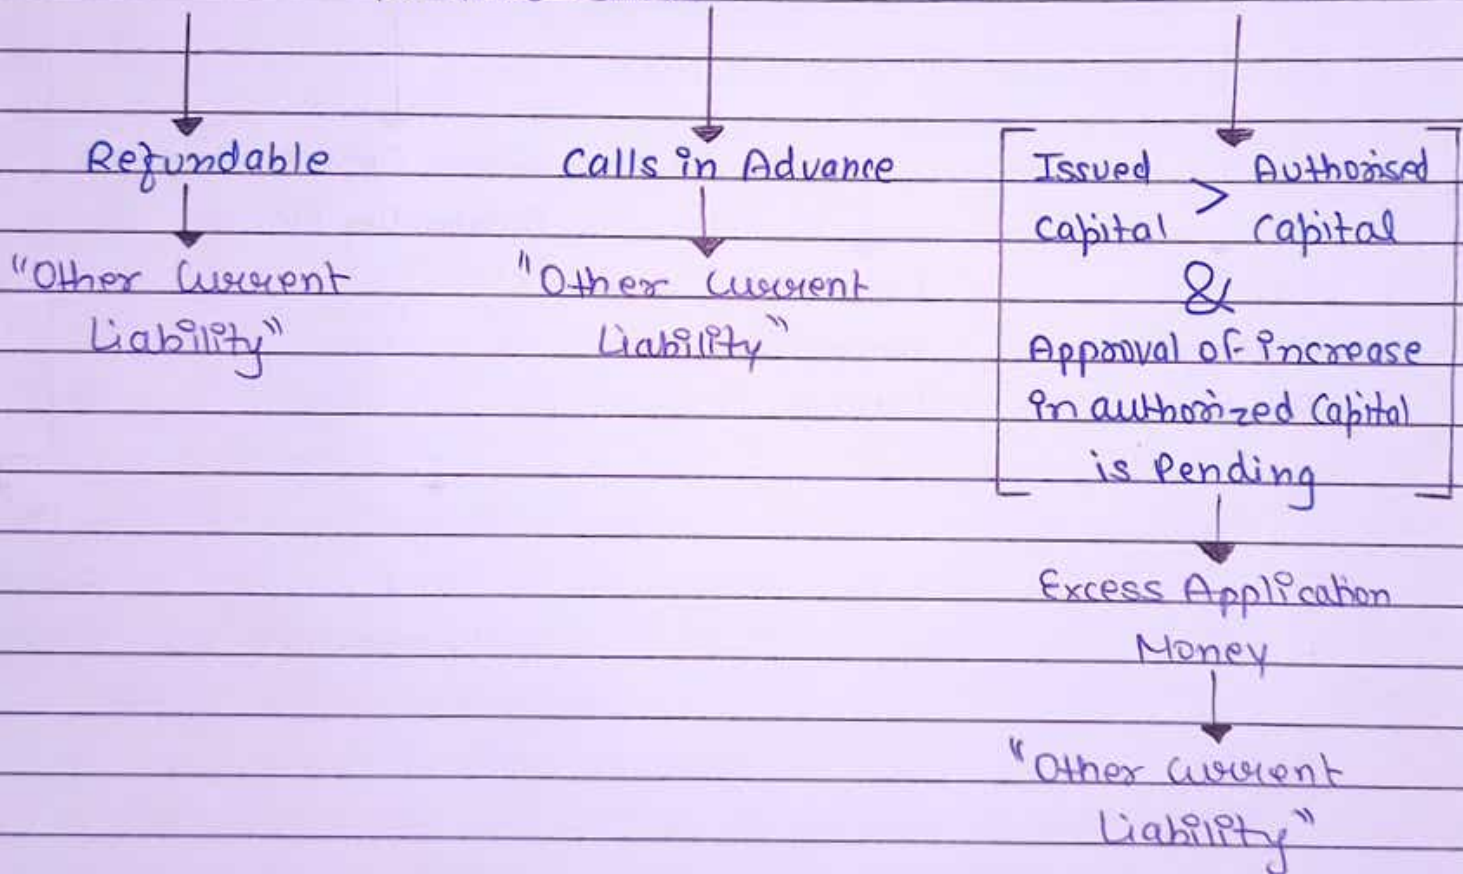 Refundable
"Other Current
Liability"
Calls in Advance
"Other Current
Liability"
Issued > Authorised
Capital Capital
&
Approval of increase
in authorized Capital
is Pending
Excess Application
Money
"Other Current
Liability"